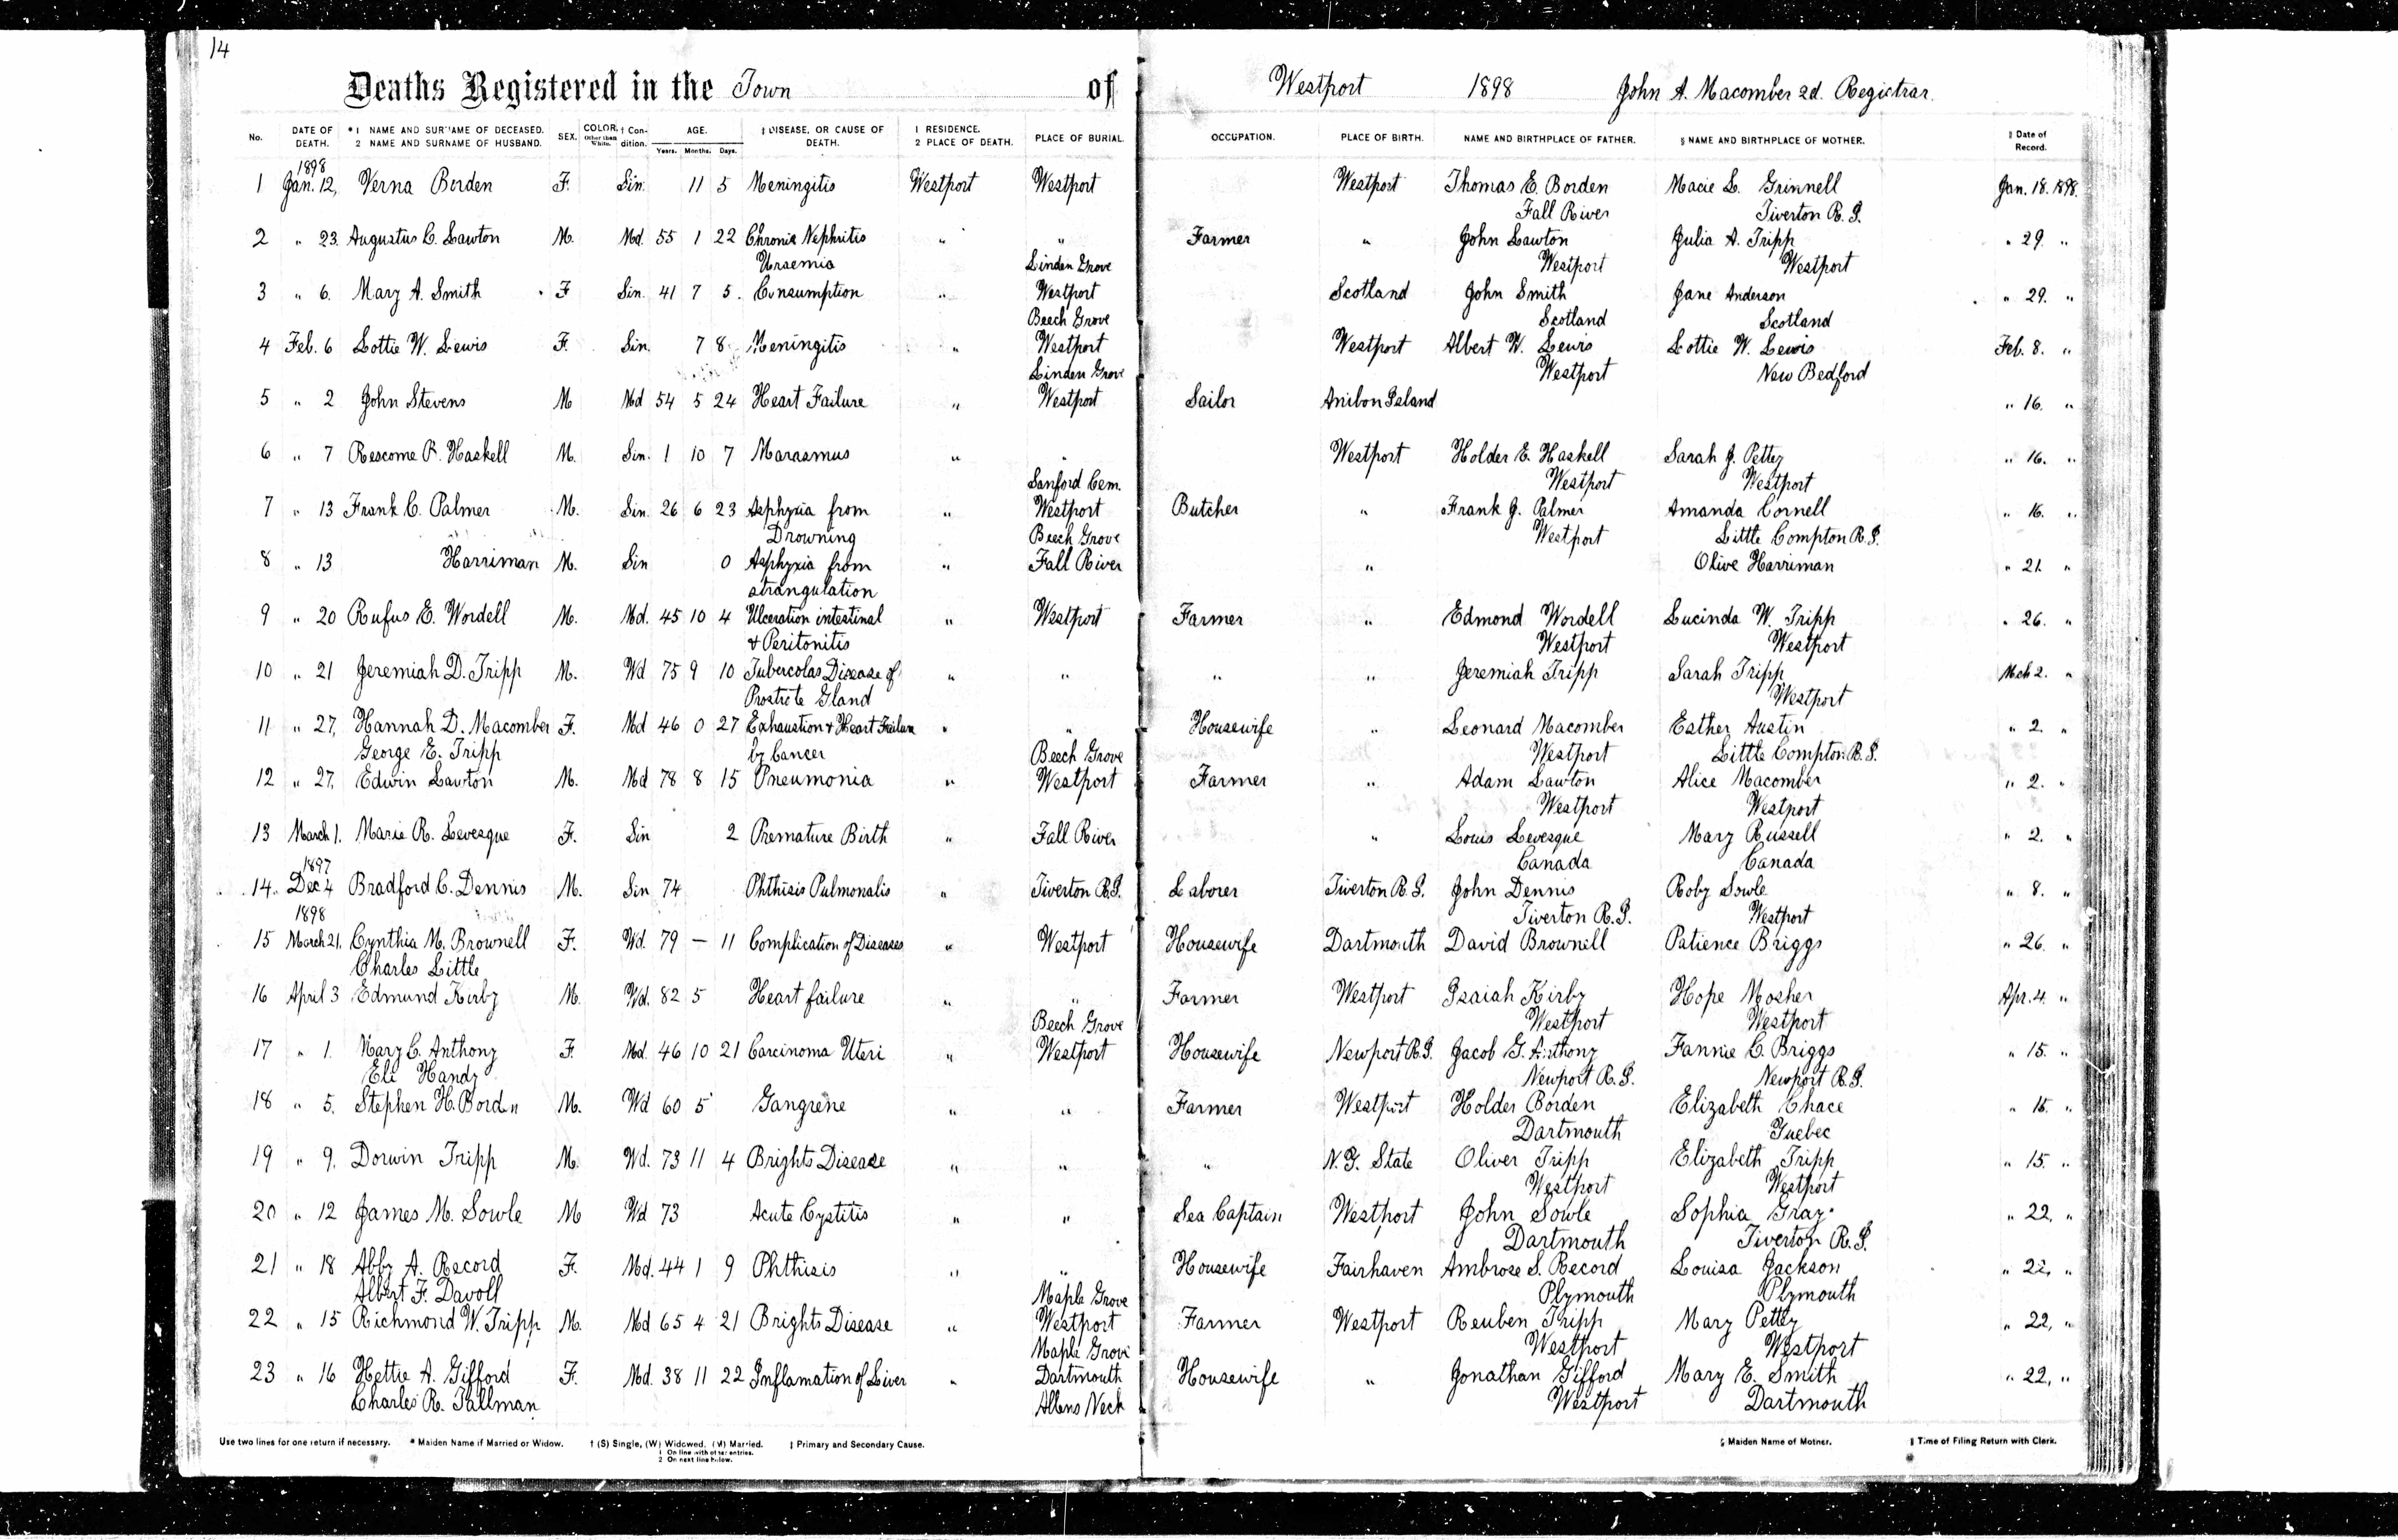 14
Deaths Registered in the Town of Westport 1898 John A. Macomber 2d. Registrar.
No. DATE OF DEATH. * 1 NAME AND SURNAME OF DECEASED. 2 NAME AND SURNAME OF HUSBAND. SEX. COLOR, Other than White. † Condition. AGE. Years. Months. Days. ‡ DISEASE, OR CAUSE OF DEATH. 1 RESIDENCE. 2 PLACE OF DEATH. PLACE OF BURIAL. OCCUPATION. PLACE OF BIRTH. NAME AND BIRTHPLACE OF FATHER. § NAME AND BIRTHPLACE OF MOTHER. ‖ Date of Record.
1898
1 Jan. 12, Verna Borden F. Sin. 11 5 Meningitis Westport Westport Westport Thomas E. Borden Macie L. Grinnell Jan. 18. 1898.
Fall River Tiverton R.I.
2 " 23. Augustus C. Lawton M. Md. 55 1 22 Chronic Nephritis " " Farmer " John Lawton Julia A. Tripp " 29. "
Uraemia Linden Grove Westport Westport
3 " 6. Mary A. Smith F Sin. 41 7 5. Consumption " Westport Scotland John Smith Jane Anderson " 29. "
Beech Grove Scotland Scotland
4 Feb. 6 Lottie W. Lewis F. Sin. 7 8 Meningitis " Westport Westport Albert W. Lewis Lottie W. Lewis Feb. 8. "
Linden Grove Westport New Bedford
5 " 2 John Stevens M Md 54 5 24 Heart Failure " Westport Sailor Anibon Island " 16. "
6 " 7 Rescome P. Haskell M. Sin. 1 10 7 Marasmus " " Westport Holder E. Haskell Sarah J. Pettey " 16. "
Sanford Cem. Westport Westport
7 " 13 Frank C. Palmer M. Sin. 26 6 23 Asphyxia from " Westport Butcher " Frank J. Palmer Amanda Cornell " 16. "
Drowning Beech Grove Westport Little Compton R.I.
8 " 13 Harriman M. Sin 0 Asphyxia from " Fall River " Olive Harriman " 21. "
strangulation
9 " 20 Rufus E. Wordell M. Md. 45 10 4 Ulceration intestinal " Westport Farmer " Edmond Wordell Lucinda W. Tripp " 26. "
& Peritonitis Westport Westport
10 " 21 Jeremiah D. Tripp M. Wd 75 9 10 Tubercolas Disease of " " " " Jeremiah Tripp Sarah Tripp Mch 2. "
Prostrite Gland Westport
11 " 27, Hannah D. Macomber F. Md 46 0 27 Exhaustion & Heart Failure " " Housewife " Leonard Macomber Esther Austin " 2. "
George E. Tripp by Cancer Beech Grove Westport Little Compton R.I.
12 " 27, Edwin Lawton M. Md 78 8 15 Pneumonia " Westport Farmer " Adam Lawton Alice Macomber " 2. "
Westport Westport
13 March 1. Marie R. Levesque F. Sin 2 Premature Birth " Fall River " Louis Levesque Mary Russell " 2. "
1897 Canada Canada
14. Dec 4 Bradford C. Dennis M. Sin 74 Phthisis Pulmonalis " Tiverton R.I. Laborer Tiverton R.I. John Dennis Roby Sowle " 8. "
1898 Tiverton R.I. Westport
15 March 21. Cynthia M. Brownell F. Wd. 79 — 11 Complication of Diseases " Westport Housewife Dartmouth David Brownell Patience Briggs " 26. "
Charles Little
16 April 3 Edmund Kirby M. Wd. 82 5 Heart failure " " Farmer Westport Isaiah Kirby Hope Mosher Apr. 4. "
Beech Grove Westport Westport
17 " 1. Mary C. Anthony F. Md. 46 10 21 Carcinoma Uteri " Westport Housewife Newport R.I. Jacob G. Anthony Fannie C. Briggs " 15. "
Eli Handy Newport R.I. Newport R.I.
18 " 5. Stephen H. Borden M. Wd 60 5 Gangrene " " Farmer Westport Holder Borden Elizabeth Chace " 15. "
Dartmouth Quebec
19 " 9. Dorwin Tripp M. Wd. 73 11 4 Brights Disease " " " N.Y. State Oliver Tripp Elizabeth Tripp " 15. "
Westport Westport
20 " 12 James M. Sowle M Wd 73 Acute Cystitis " " Sea Captain Westport John Sowle Sophia Gray " 22, "
Dartmouth Tiverton R.I.
21 " 18 Abby A. Record F. Md. 44 1 9 Phthisis " " Housewife Fairhaven Ambrose S. Record Louisa Jackson " 22, "
Albert F. Davoll Maple Grove Plymouth Plymouth
22 " 15 Richmond W. Tripp M. Md 65 4 21 Brights Disease " Westport Farmer Westport Reuben Tripp Mary Pettey " 22, "
Maple Grove Westport Westport
23 " 16 Hettie A. Gifford F. Md. 38 11 22 Inflamation of Liver " Dartmouth Housewife " Jonathan Gifford Mary E. Smith " 22, "
Charles R. Tallman Allens Neck Westport Dartmouth
Use two lines for one return if necessary. * Maiden Name if Married or Widow. † (S) Single, (W) Widowed, (M) Married. ‡ Primary and Secondary Cause. § Maiden Name of Mother. ‖ Time of Filing Return with Clerk.
1 On line with other entries.
2 On next line below.